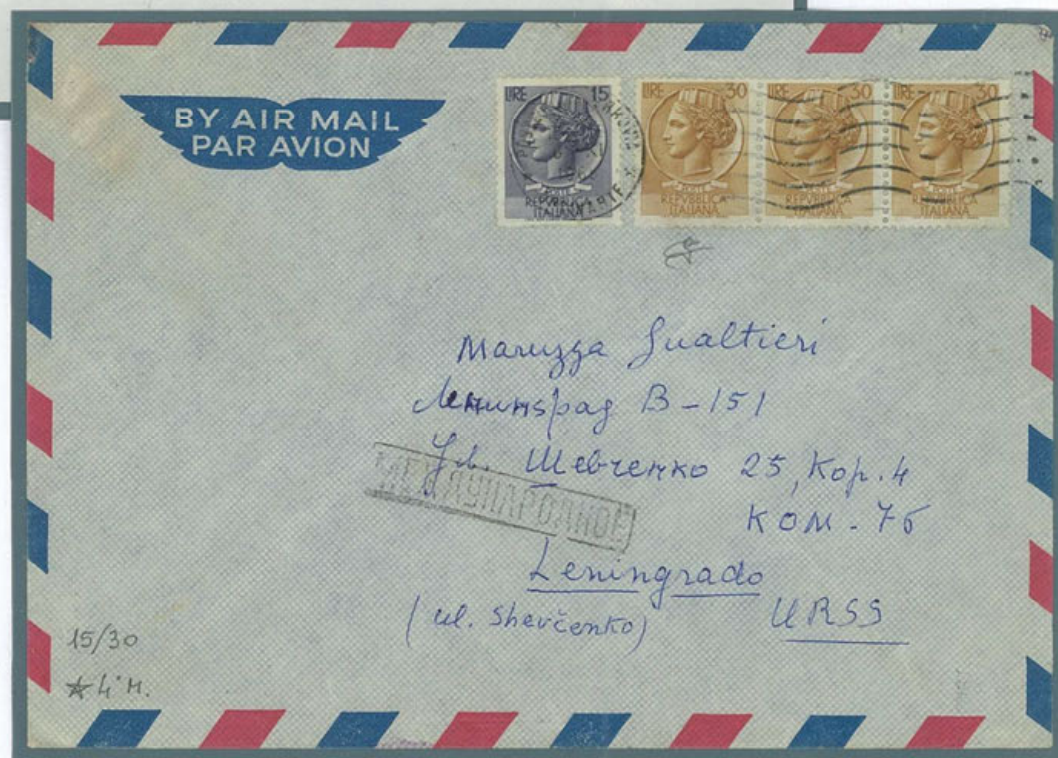 BY AIR MAIL
PAR AVION
LIRE 15
POSTE
REPVBBLICA
ITALIANA
LIRE 30
POSTE
REPVBBLICA
ITALIANA
LIRE 30
POSTE
REPVBBLICA
ITALIANA
LIRE 30
POSTE
REPVBBLICA
ITALIANA
Maruzza Gualtieri
Ленинград В-151
Ул. Шевченко 25, кор. 4
МЕЖДУНАРОДНОЕ
КОМ-7б
Leningrado
(ul. Shevčenko) URSS
15/30